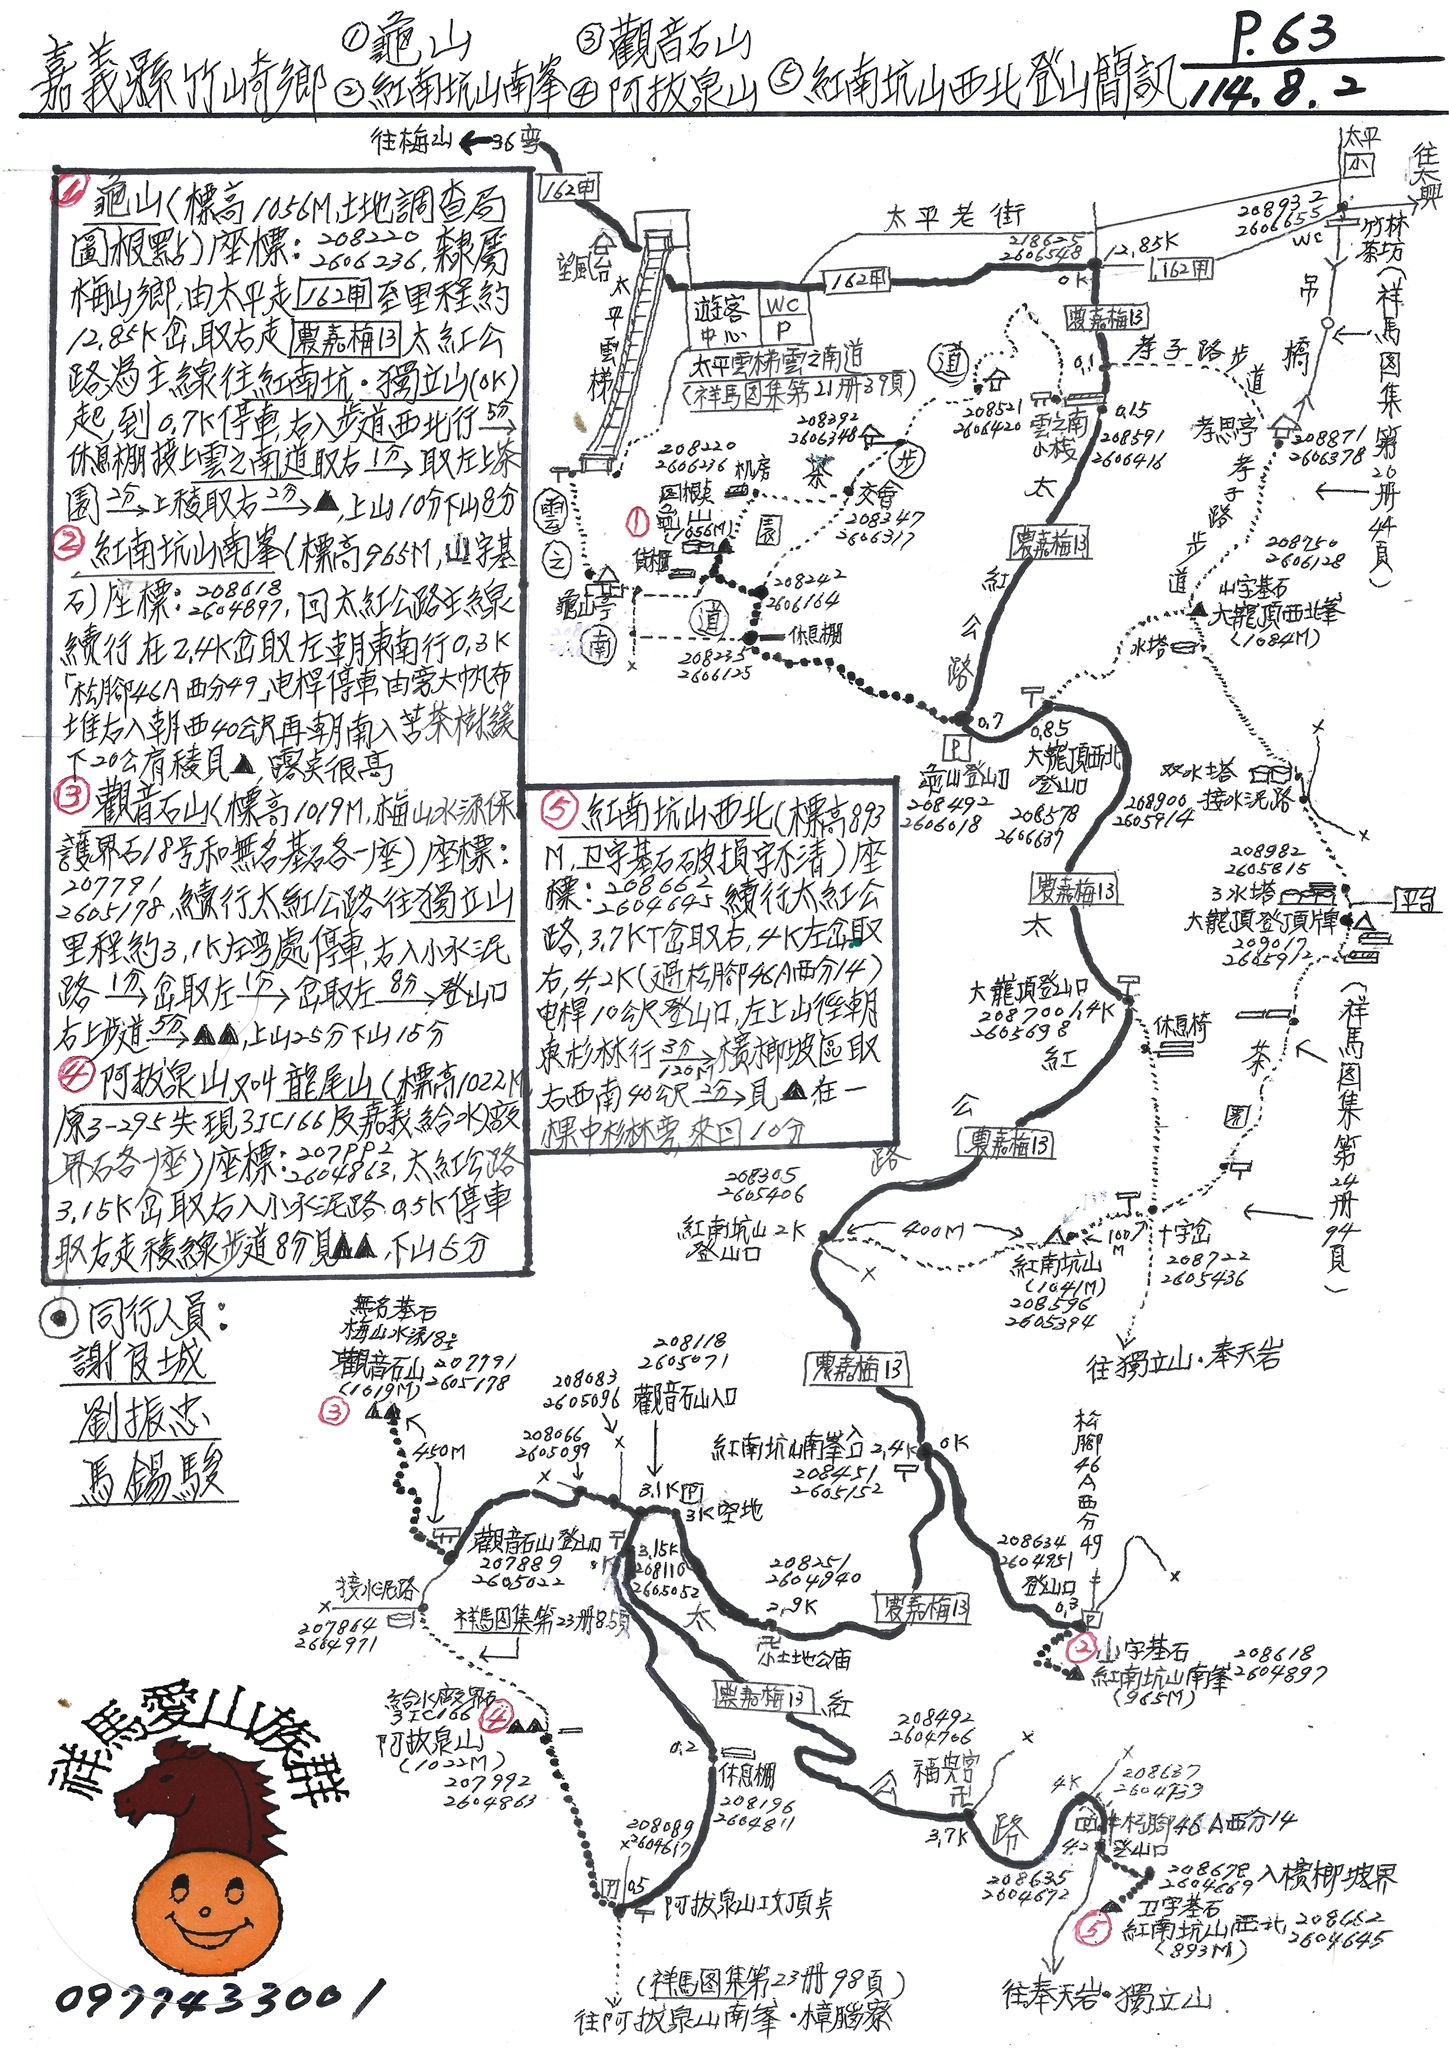 嘉義縣竹崎鄉
①龜山 ③觀音石山
②紅南坑山南峯④阿拔泉山⑤紅南坑山西北登山簡訊
P.63
114.8.2
①龜山(標高1056M,土地調查局
圖根點)座標:208220 2606236,隸屬
梅山鄉,由太平走162甲至里程約
12.85K岔取右走農嘉梅13太紅公
路為主線往紅南坑·獨立山(0K)
起,到0.7K停車,右入步道西北行5分→
休息棚接上雲之南道取右1分→取左上茶
園2分→上稜取右2分→▲,上山10分下山8分
②紅南坑山南峯(標高965M,山字基
石)座標:208618 2604897,回太紅公路主線
續行在2.4K岔取左朝東南行0.3K
「松腳46A西分49」电桿停車由旁大帆布
堆右入朝西40公尺再朝南入苦茶樹緩
下20公有稜見▲,露尖很高
③觀音石山(標高1019M,梅山水源保
護界石18号和無名基石各一座)座標:
207791 2605178,續行太紅公路往獨立山
里程約3.1K左弯處停車,右入小水泥
路1分→岔取左1分→岔取左8分→登山口
右上步道5分→▲▲,上山25分下山15分
④阿拔泉山又叫龍尾山(標高1022M
原3-295失現3JC166及嘉義給水廠
界石各一座)座標:207992 2604863,太紅公路
3.15K岔取右入小水泥路0.5K停車
取右走稜線步道8分見▲▲,下山5分
⑤紅南坑山西北(標高893
M,卫字基石破損字不清)座
標:208662 2604645續行太紅公
路,3.7K丅岔取右,4K左岔取
右,4.2K(過松腳46A西分14)
电桿10公尺登山口,左上山徑朝
東杉林行3分→120M橫榔坡區取
右西南40公尺2分→見▲在一
棵中杉林旁,來回10分
⊙同行人員:
謝良城
劉振忠
馬錫駿
往梅山←36弯
162甲
望風台
太平雲梯
遊客中心
WC
P
162甲
太平老街
218625
2606548
12.85K
0K
162甲
208932
2606655
WC
太平
小
往太興
竹林茶坊
(祥馬图集第20册44頁)
吊橋
太平雲梯雲之南道
(祥馬図集第21册39頁)
農嘉梅13
0.1
孝子路步道
孝思亭
208871
2606378
孝子路步道
208521
2606420
雲之南小棧
0.15
208591
2606416
208292
2606348
步
道
茶
園
交會
208347
2606317
208220
2606236
机房
図根点
①
龜山
(1056M)
貨櫃
雲
之
南
道
龜山亭
208242
2606164
休息棚
208235
2606125
太
農嘉梅13
紅
公
路
208750
2606128
山字基石
大龍頂西北峯
(1084M)
水塔
0.7
P
龜山登山口
208492
2606018
0.85
大龍頂西北登山口
208578
2606637
双水塔
208900
2605914
接水泥路
208982
2605815
3水塔
大龍頂登頂牌
209017
2605912
平台
農嘉梅13
太
大龍頂登山口
208700
2605698
1.4K
休息椅
紅
茶
園
(祥馬图集第24册94頁)
公
農嘉梅13
路
208305
2605406
紅南坑山登山口
2K
400M
100M
紅南坑山
(1041M)
208596
2605394
十字岔
208722
2605436
往獨立山·奉天岩
農嘉梅13
無名基石
梅山水源18号
觀音石山
(1019M)
207791
2605178
③
450M
208083
2605096
208066
2605099
208118
2605071
觀音石山入口
紅南坑山南峯入口
2.4K
0K
208451
2605152
松腳46A西分49
3.1K
3K空地
觀音石山登山口
207889
2605022
3.15K
208110
2605052
208251
2604940
2.9K
農嘉梅13
小土地公庙
208634
2604951
登山口
0.3
P
②山字基石
紅南坑山南峯
(965M)
208618
2604897
接水泥路
207864
2604971
祥馬図集第23册85頁
給水廠界石
3JC166
④
阿拔泉山
(1022M)
207992
2604863
太
農嘉梅13
紅
公
路
0.2
休息棚
208196
2604811
208089
2604617
0.5
阿拔泉山攻頂点
208492
2604766
福興宮
3.7K
208635
2604672
4K
208637
2604733
松腳46A西分14
4.2
登山口
208678
2604669
入檳榔坡界
⑤
卫字基石
紅南坑山西北
(893M)
208662
2604645
往奉天岩·獨立山
(祥馬图集第23册98頁)
往阿拔泉山南峯·樟腦寮
祥馬愛山族群
0977433001